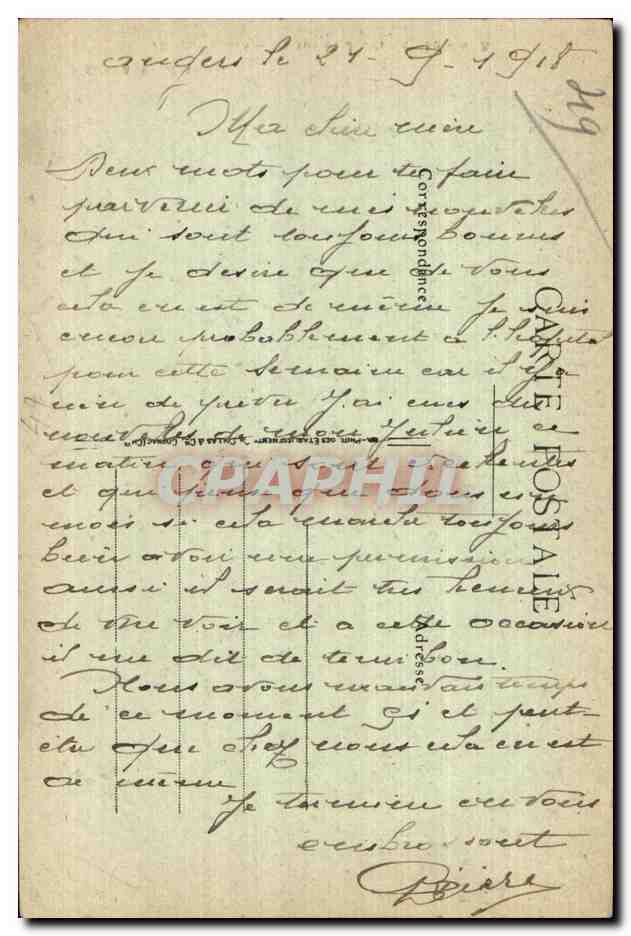 angers le 21 - 9 - 1918
219
Ma chere mere
Deux mots pour te faire
parvenir de mes nouvelles
qui sont toujours bonnes
et je desire que de vous
cela en est de même Je suis
encor probablement a l'hopital
pour cette semaine car il y a
rien de prevu J'ai eues des
nouvelles de mon Julien ce
matin qui sont
et que pense que dans un
mois si cela marche toujours
bien avoir une permission
aussi il serait tres heureux
de me voir et a cette occasion
il me dit de tenir bon.
Nous avons mauvais temps
de ce moment çi et peut-
etre que chez vous cela en est
de même
Je termine en vous
embrassant
Pierre
CARTE POSTALE
Correspondance
Adresse
CPAPHIL